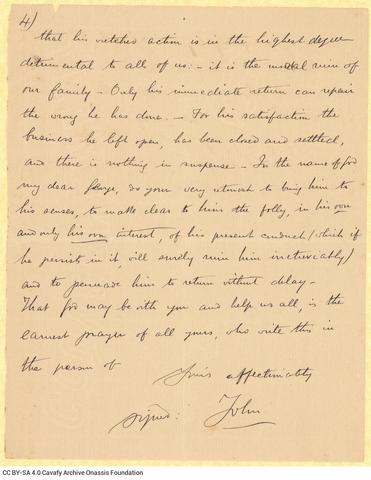 4)
that his wretched action is in the highest degree
detrimental to all of us:- it is the moral ruin of
our family - Only his immediate return can repair
the wrong he has done. - For his satisfaction the
business he left open, has been closed and settled,
and there is nothing in suspense - In the name of God
my dear George, do your very utmost to bring him to
his senses, to make clear to him the folly, in his own
and only his own interest, of his present conduct (which if
he persist in it, will surely ruin him irretrievably)
and to persuade him to return without delay -
That God may be with you and help us all, is the
earnest prayer of all yours, who write this in
the person of
Yours affectionately
signed: John
CC BY-SA 4.0 Cavafy Archive Onassis Foundation